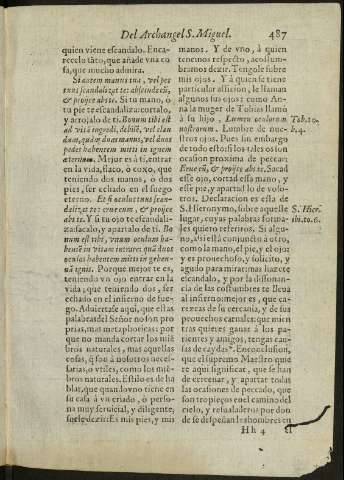 Del Archangel S. Miguel. 487
quien viene escandalo. Encarecelo tãto, que añade vna cosa, que mucho admira.
Si autem manus tua, vel pes
tuus scandalizat te: abscinde eũ,
& proijce abs te. Si tu mano, o
tu pie te escandaliza: cortalo,
y arrojalo de ti. Bonum tibi est
ad vitã ingredi, debilẽ, vel clau
dum, quàm duas manus, vel duos
pedes habentem mitti in ignem
æternum. Mejor es à ti, entrar
en la vida, flaco, ò coxo, que
teniendo dos manos, ò dos
pies, ser echado en el fuego
eterno. Et si oculus tuus scan-
dalizat te: erue eum, & proijce
abs te. Y si tu ojo te escandali-
za: sacalo, y apartalo de ti. Bo
num est tibi, vnum oculum ha-
bentẽ in vitam intrare: quã duos
oculos habentem mitti in gehen-
nã ignis. Porque mejor te es,
teniendo vn ojo entrar en la
vida, que teniendo dos, ser
echado en el infierno de fue-
go. Aduiertase aqui, que estas
palabras del Señor no son pro
prias, mas metaphoricas: por
que no manda cortar los miẽ
bros naturales, mas aquellas
cosas, q̃ son á nosotros neces-
sarias, o vtiles, como los miẽ-
bros naturales. Estilo es de ha
blar, que quando vno tiene en
su casa á vn criado, ò perso-
na muy seruicial, y diligente;
suele dezir: Es mis pies, y mis
manos. Y de vno, à quien
tenemos respecto, acostum-
bramos dezir. Tengole sobre
mis ojos. Y à quien se tiene
particular aficion, le llaman
algunos sus ojos: como An-
na la muger de Tobias llamò
à su hijo, Lumen oculorum Tob. 10.
nostrorum. Lumbre de nue- b. 4.
stros ojos. Pues sin embargo
de todo esto: si los tales os son
ocasion proxima de peccar:
Erue eũ, & proijce abs te. Sacad
esse ojo, cortad essa mano, y
esse pie, y apartad lo de voso-
tros. Declaracion es esta de
S. Hieronymo, sobre aquesse S. Hier.
lugar, cuyas palabras forma- ibi. to. 6.
les quiero referiros. Si algu-
no, assi està conjuncto à otro,
como la mano, el pie, y el ojo:
y es prouechoso, y solicito, y
agudo para mirar: mas hazete
escandalo, y por la dissonan-
cia de las costumbres te lleua
al infierno: mejor es, que ca-
rezcas de su cercania, y de sus
prouechos carnales: que mien
tras quieres ganas à los pa-
rientes y amigos, tengas cau-
sas de caydas. En conclusion,
que el supremo Maestro quie
re aqui significar, que se han
de cercenar, y apartar todas
las ocasiones de peccado, que
son tropieços en el camino del
cielo, y resualaderos por don
de se despeñan los hombres en
Hh 4 el